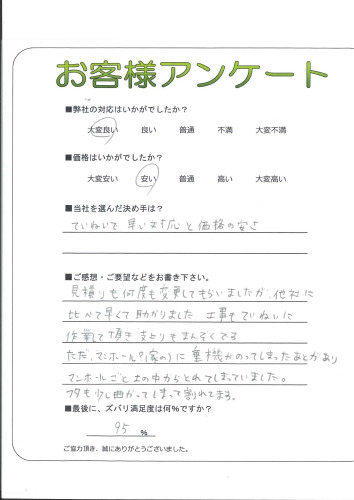 お客様アンケート
■弊社の対応はいかがでしたか？
大変良い 良い 普通 不満 大変不満
■価格はいかがでしたか？
大変安い 安い 普通 高い 大変高い
■当社を選んだ決め手は？
ていねいで 早い対応と価格の安さ
■ご感想・ご要望などをお書き下さい。
見積りも何度も変更してもらいましたが、他社に
比べて早くて助かりました 工事もていねいに
作業して頂き 仕上りもまんぞくでる
ただ、マンホール?(家の)に重機がのってしまったあとがあり
マンホールごと土の中からとれてしまっていました。
フタも少し曲がってしまって割れてます。
■最後に、ズバリ満足度は何%ですか？
95 %
ご協力頂き、誠にありがとうございました。